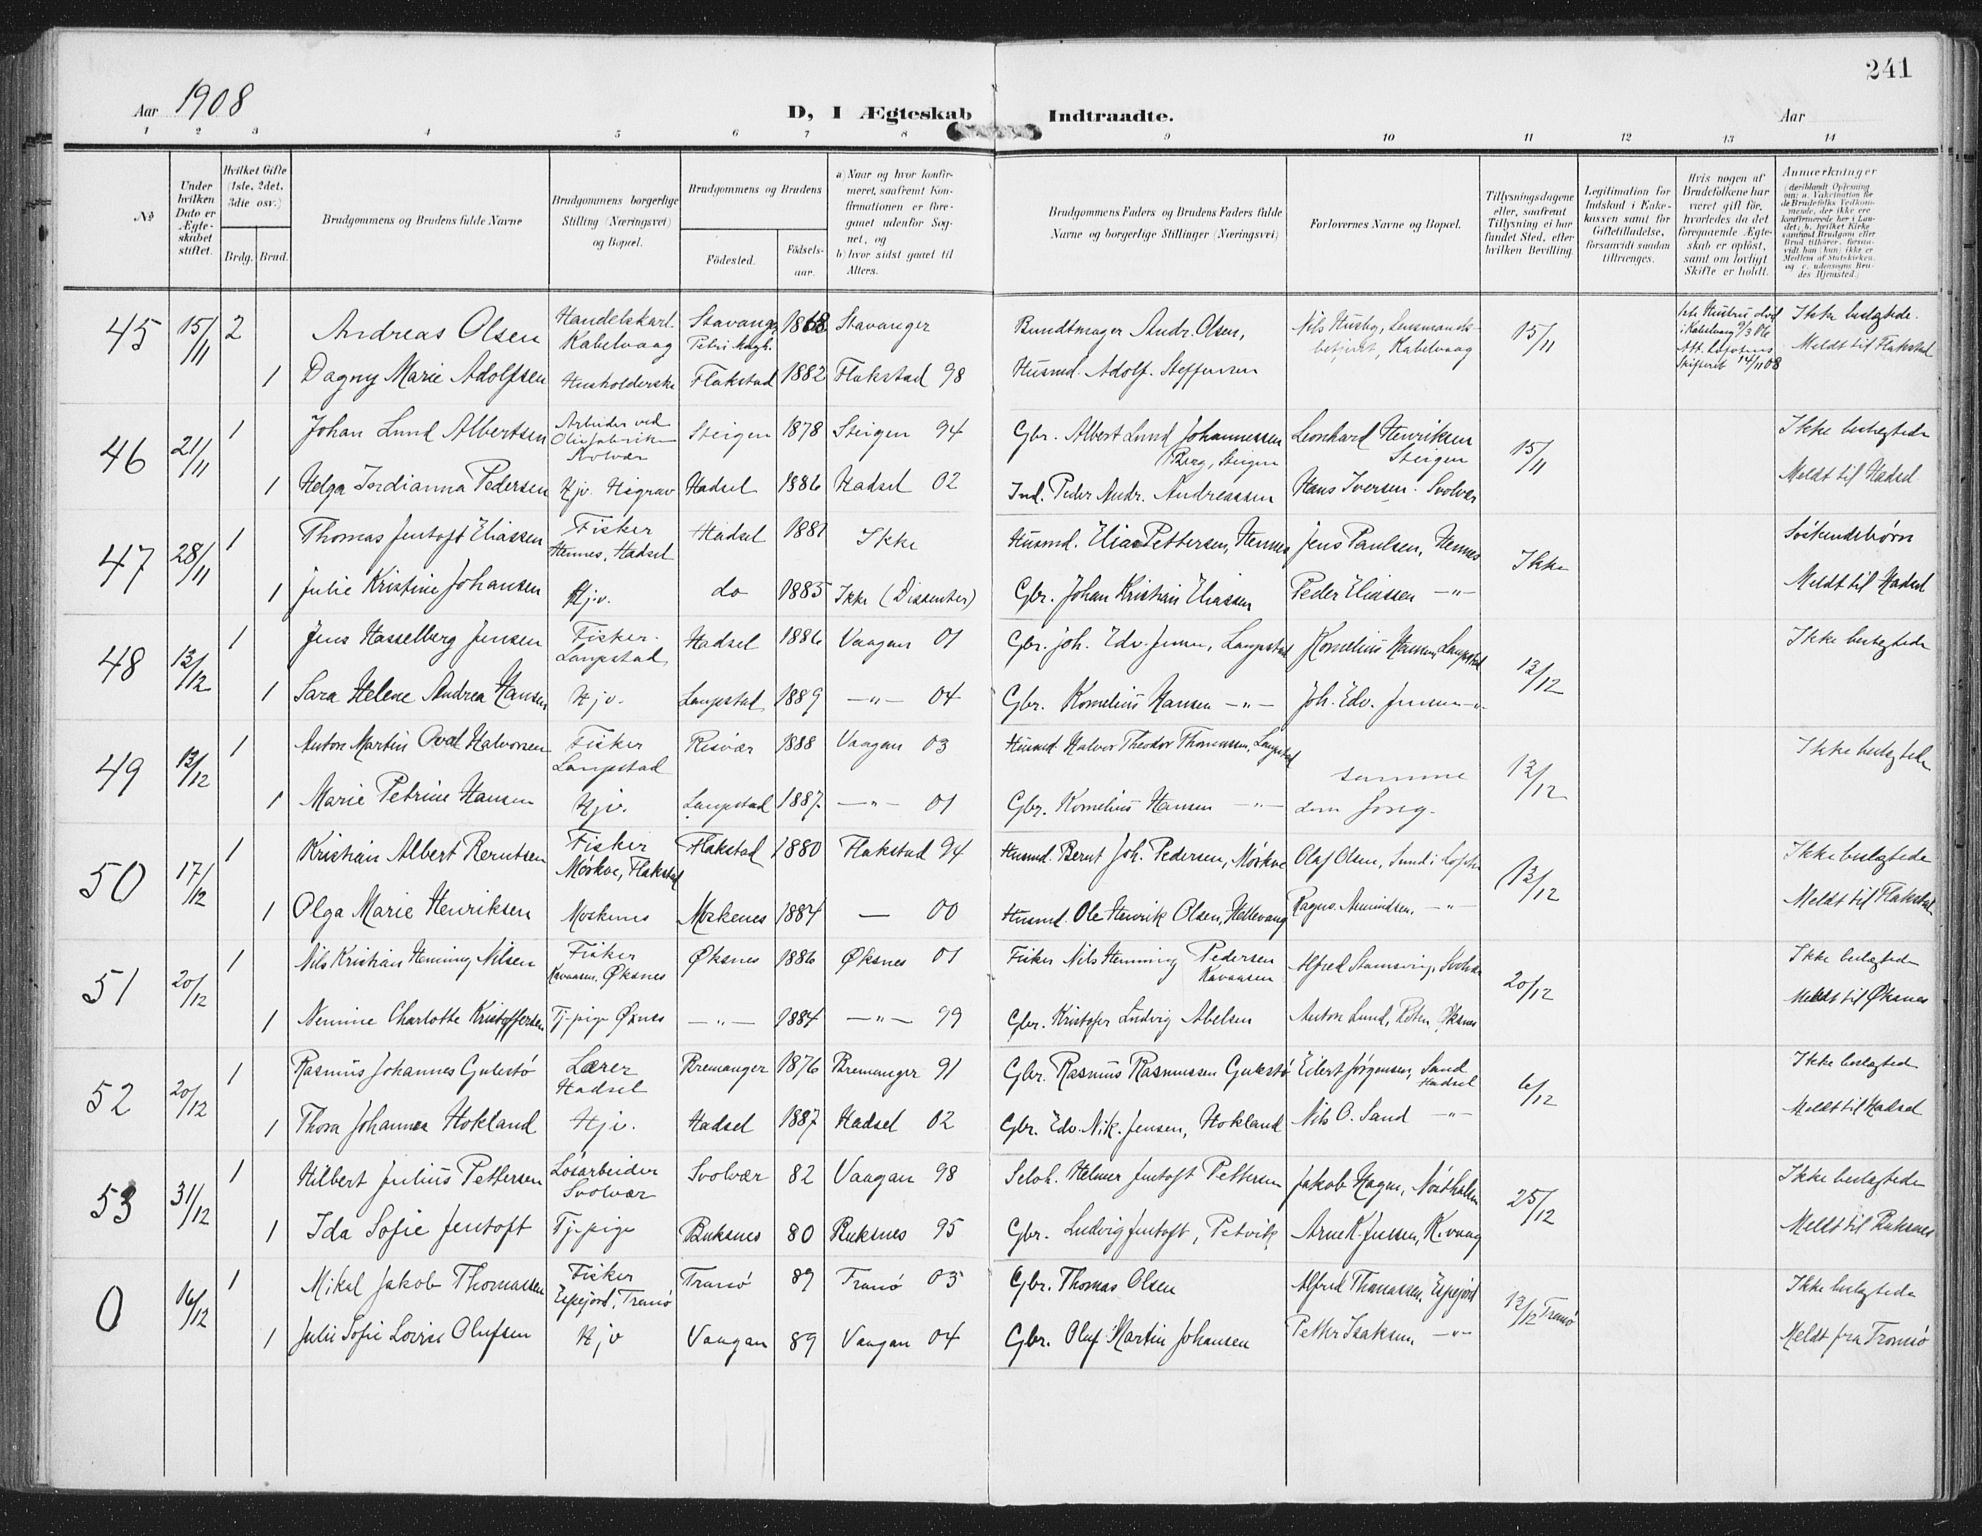 241
Aar 1908
D, I Ægteskab Indtraadte.
Aar
1 2 3 4 5 6 7 8 9 10 11 12 13 14
No
Under hvilken Dato er Ægteskabet stiftet.
Hvilket Gifte (1ste, 2det, 3die osv.)
Brdg. Brud.
Brudgommens og Brudens fulde Navne
Brudgommens borgerlige Stilling (Næringsvei) og Bopæl.
Brudgommens og Brudens
Fødested.
Fødselsaar.
a) Naar og hvor konfirmeret, saafremt Konfirmationen er foregaaet udenfor Sognet, og
b) hvor sidst gaaet til Alters.
Brudgommens Faders og Brudens Faders fulde Navne og borgerlige Stillinger (Næringsvei)
Forlovernes Navne og Bopæl.
Tillysningsdagene eller, saafremt Tillysning ei har fundet Sted, efter hvilken Bevilling.
Legitimation for Indskud i Enkekassen samt for Giftetilladelse, forsaavidt saadan tiltrænges.
Hvis nogen af Brudefolkene har været gift før, hvorledes da det foregaaende Ægteskab er opløst, samt om lovligt Skifte er holdt.
Anmærkninger
45 15/11 2 Andreas Olsen Handelskarl Kabelvaag Stavanger Petri 1868 Stavanger Bundtmager Andr. Olsen, Nils Husby, Lensmandsbetjent, Kabelvaag 15/11 Skifteret 14/11 08 Ikke beslægtede.
1 Dagny Marie Adolfsen Husholderske Flakstad 1882 Flakstad 98 Husmd. Adolf. Steffensen Meldt til Flakstad
46 21/11 1 Johan Lund Albertsen Arbeider ved Oliefabriken Svolvær Steigen 1878 Steigen 94 Gbr. Albert Lund Johannessen Berg, Steigen Leonhard Henriksen Steigen 15/11 Ikke beslægtede
1 Helga Indianna Pedersen Hjv. Hadsel 1886 Hadsel 02 Ind. Peder Andr. Andreassen Hans Iversen. Svolvær Meldt til Hadsel
47 28/11 1 Thomas Jentoft Eliassen Fisker Hennes, Hadsel Hadsel 1881 Ikke Husmd. Elias Pettersen, Hennes Jens Paulsen, Hennes Ikke Søskendebørn
1 Julie Kristine Johansen Hjv. do 1885 Ikke (Dissenter) Gbr. Johan Kristian Eliassen Peder Eliassen —"— Meldt til Hadsel
48 13/12 1 Jens Hasselberg Jensen Fisker. Laupstad, Hadsel 1886 Vaagan 01 Gbr. Joh. Edv. Jensen, Laupstad Kornelius Hansen, Laupstad 13/12 Ikke beslægtede
1 Sara Helene Andrea Hansen Hjv. Laupstad 1889 —"— 04 Gbr. Kornelius Hansen —"— Joh. Edv. Jensen —"—
49 13/12 1 Anton Martin Halvorsen Fisker Laupstad Risvær 1888 Vaagan 03 Husmd. Halvor Theodor Thomassen, Laupstad samme 13/12 Ikke beslægtede
1 Marie Petrine Hansen Hjv. Laupstad 1887 —"— 01 Gbr. Kornelius Hansen —"— som forrig.
50 17/12 1 Kristian Albert Berntsen Fisker Mørkve, Flakstad Flakstad 1880 Flakstad 94 Husmd. Bernt Joh. Pedersen, Mørkve Olaf Olsen, Sund i Lofoten 13/12 Ikke beslægtede
1 Olga Marie Henriksen Moskenes Moskenes 1884 — 00 Husmd. Ole Henrik Olsen, Amundsen, —"— Meldt til Flakstad
51 20/12 1 Nils Kristian Henning Nilsen Fisker Kavaasen, Øksnes Øksnes 1886 Øksnes 01 Fisker Nils Henning Pedersen Kavaasen Alfred 20/12 Ikke beslægtede
1 Nemine Charlotte Kristoffersen Tj.pige Øksnes —"— 1884 —"— 99 Gbr. Kristofer Ludvig Abelsen Anton Lund, Øksnes Meldt til Øksnes
52 20/12 1 Rasmus Johannes Gulestø Lærer Hadsel Bremanger 1876 Bremanger 91 Gbr. Rasmus Rasmussen Gulestø Eilert Jørgensen, Sand Hadsel 6/12 Ikke beslægtede
1 Thora Johannea Hokland Hjv. Hadsel 1887 Hadsel 02 Gbr. Edv. Nik. Jensen, Hokland Nils O. Sand —"— Meldt til Hadsel
53 31/12 1 Hilbert Julius Pettersen Løsarbeider Svolvær Svolvær 82 Vaagan 98 Selvh. Helmer Jentoft Pettersen Jakob Hagen, 25/12 Ikke beslægtede
1 Ida Sofie Jentoft Tj.pige Buksnes 80 Buksnes 95 Gbr. Ludvig Jentoft, Petvik Arne K. Jensen, K.vaag Meldt til Buksnes
0 16/12 1 Mikal Jakob Thomassen Fisker Espejord, Tranø Tranø 89 Tranø 03 Gbr. Thomas Olsen Alfred Thomassen, Espejord 13/12 Tranø Ikke beslægtede
1 Julie Sofie Lovise Olufsen Hjv Vaagan 89 Vaagan 04 Gbr. Oluf Martin Johansen Petter Isaksen —"— Meldt fra Tromsø